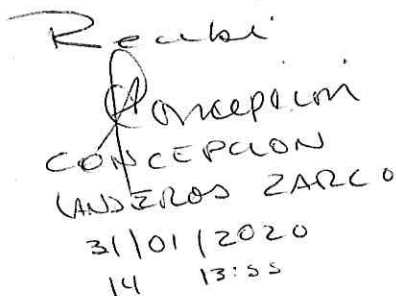 Recibí
Concepcion
CONCEPCION
LANDEROS ZARCO
31/01/2020
14 13:55